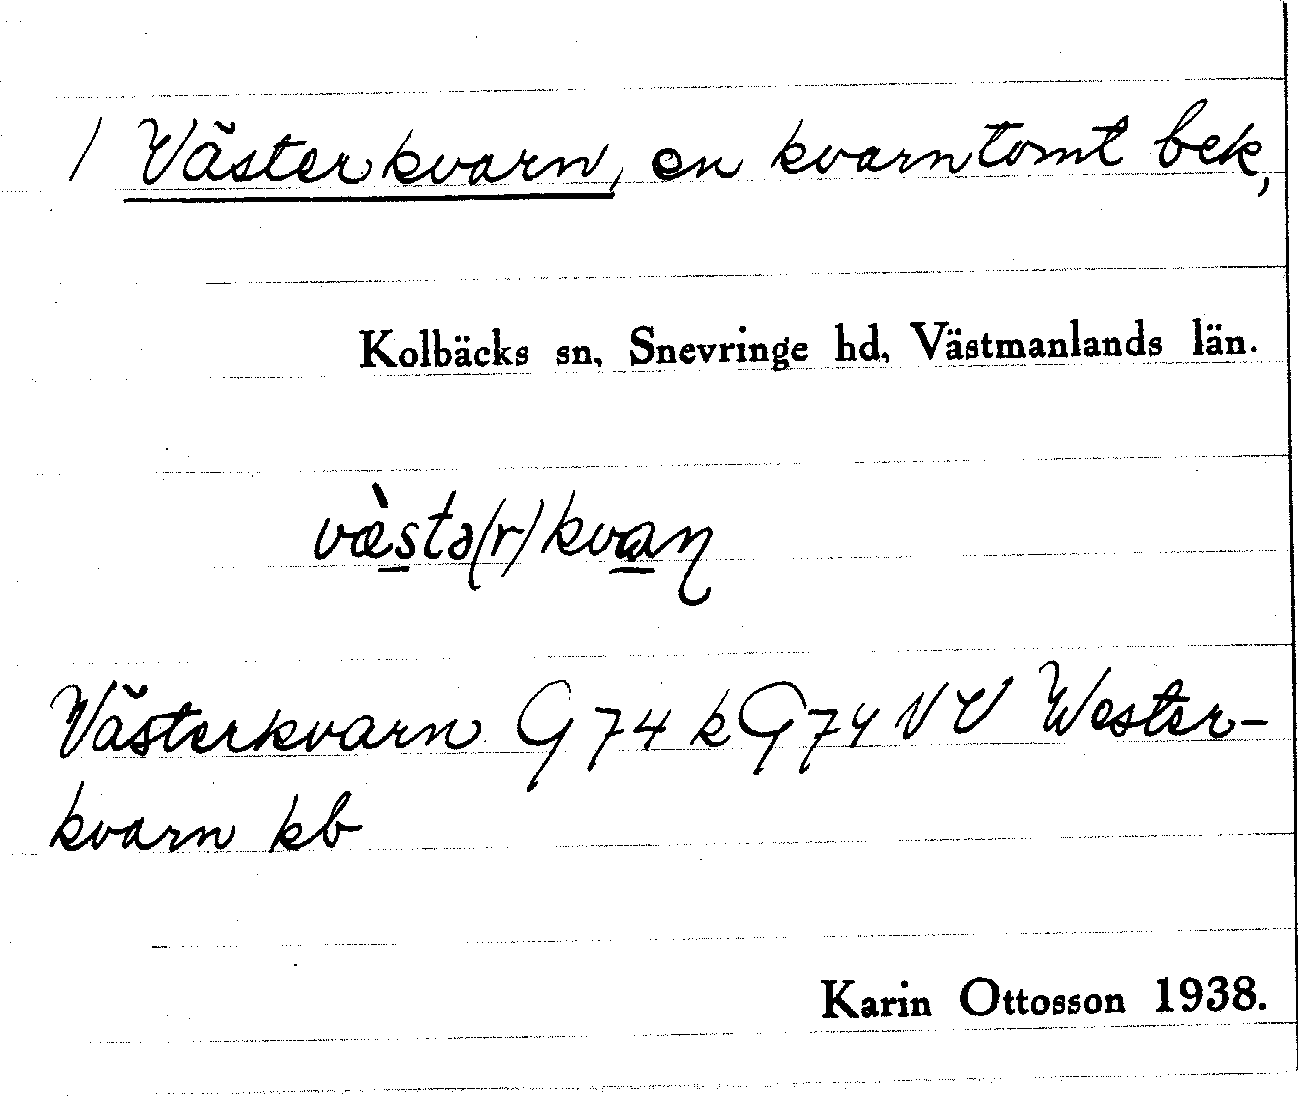 / Västerkvarn, en kvarntomt bek,
Kolbäcks sn, Snevringe hd, Västmanlands län.
væ̀stə(r)kvaɳ
Västerkvarn G74 kG74 NV Wester-
kvarn kb
Karin Ottosson 1938.